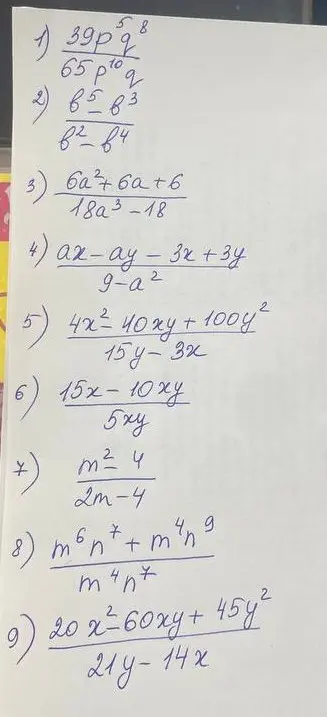 1) 39p⁵q⁸ / 65p¹⁰q
2) (в⁵ - в³) / (в² - в⁴)
3) (6a² + 6a + 6) / (18a³ - 18)
4) (ax - ay - 3x + 3y) / (9 - a²)
5) (4x² - 40xy + 100y²) / (15y - 3x)
6) (15x - 10xy) / 5xy
7) (m² - 4) / (2m - 4)
8) (m⁶n⁷ + m⁴n⁹) / m⁴n⁷
9) (20x² - 60xy + 45y²) / (21y - 14x)